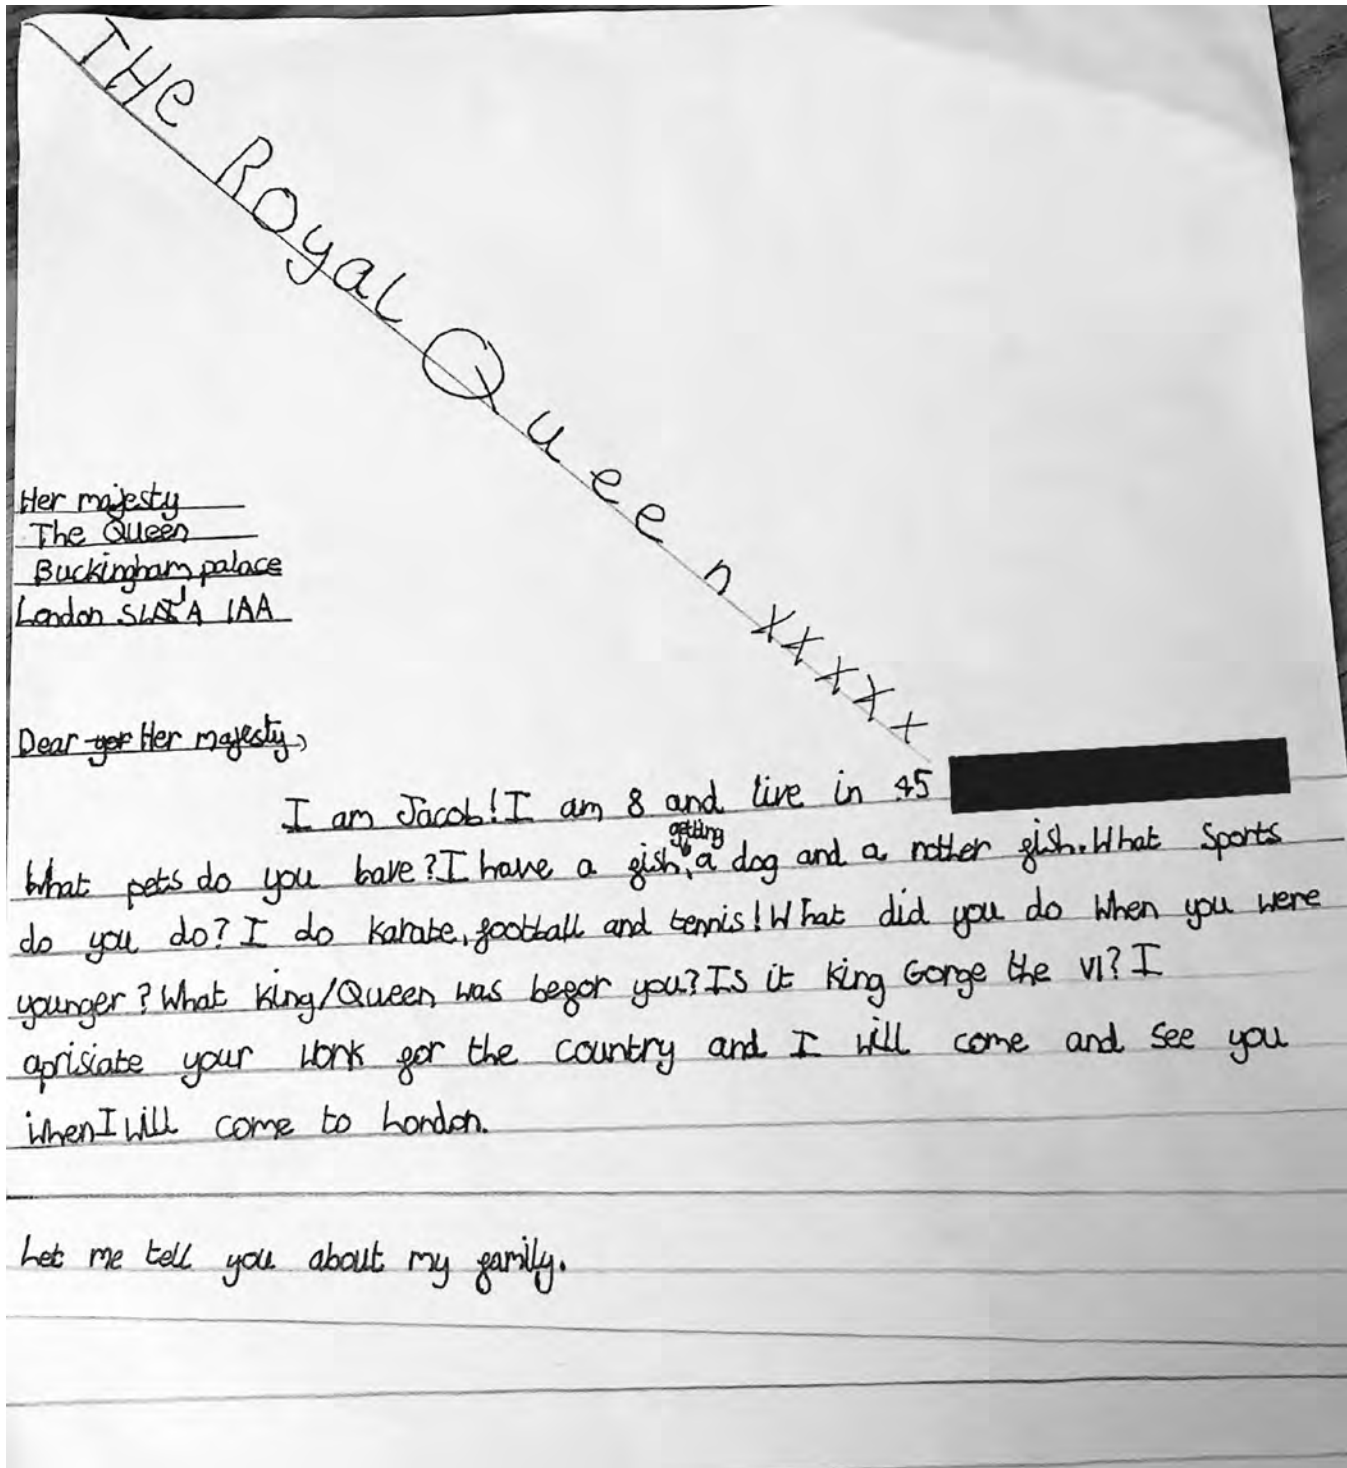 THe Royal Queen xxxxx
Her majesty
The Queen
Buckingham palace
London 1AA
Dear Her majesty,
I am Jacob! I am 8 and live in 45
What pets do you have? I have a fish, getting a dog and a nother fish. What Sports
do you do? I do karate, football and tennis! What did you do When you were
younger? What king/Queen was befor you? Is it king Gorge the VI? I
aprisiate your work for the country and I will come and see you
when I will come to London.
Let me tell you about my family.